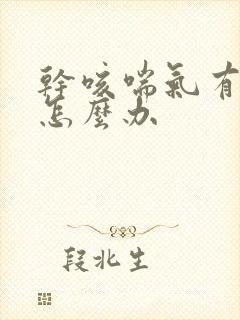 幹咳喘氣有
怎麼办
段北生